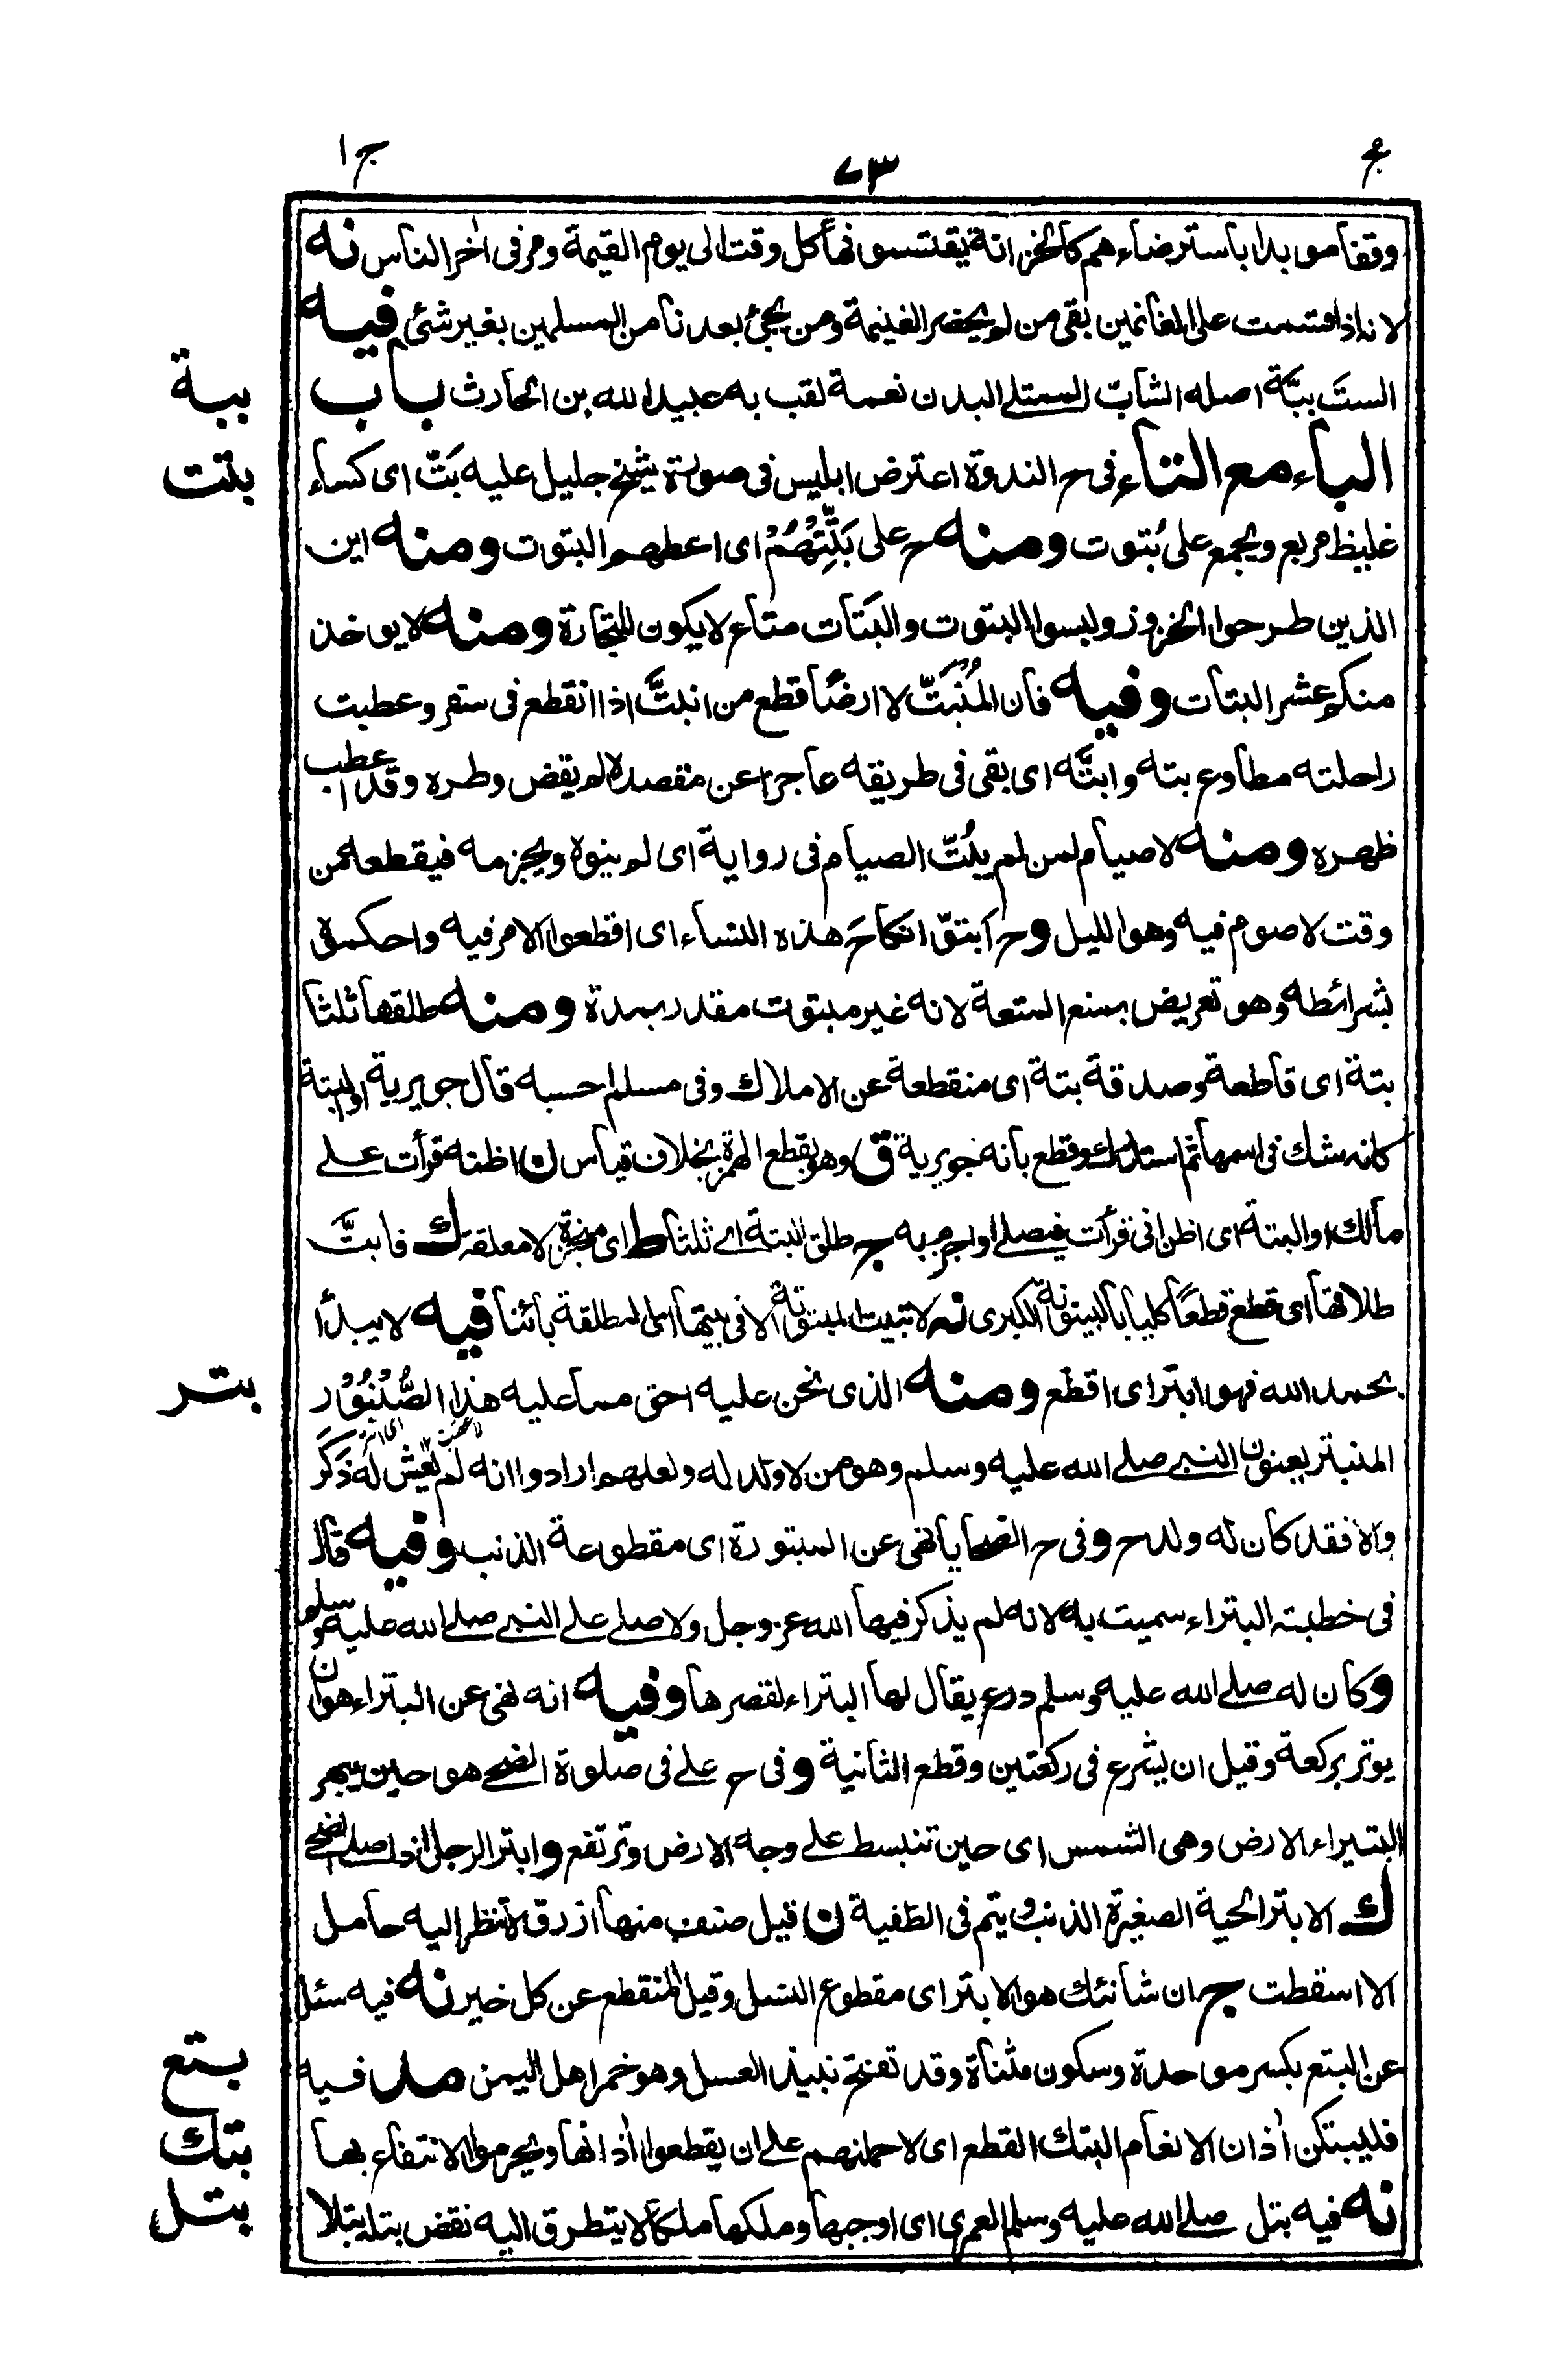 ج ا
٧٣
وقفا موبدا باسترضاءهم كالخزانة يقتسمونها كل وقت الى يوم القيمة ومر فى أخر الناس نه
لانه اذا قسمت على الغانمين بقى من لم يحضر الغنيمة ومن يجئ بعدنا من المسلمين بغير شئ فيه
ببة
الستَ ببَّة اصله الشابّ الممتلے البدن نعمة لقب به عبيد الله بن الحارث باب
بتت
الباء مع التاء فى ح الندوة اعترض ابليس فى صورة شيخ جليل عليه بَتّ اى كساء
غليظ مربع ويجمع على بُتوت ومنه ح على بَتِّتْهُمْ اى اعطهم البتوت ومنه اين
الذين طرحوا الخزوز ولبسوا البتوت والبَتات متاع لا يكون للتجارة ومنه لا يوخذ
منكم عشر البتات وفيه فان المُنْبَتّ لا ارضًا قطع من انبتَّ اذا انقطع فى سفر وعطبت
راحلته مطاوع بته وابتَّه اى بقى فى طريقه عاجزا عن مقصده لم يقض وطره وقد اعطب
ظهره ومنه لا صيام لمن لم يبُتّ الصيام فى رواية اى لم ينوه ويجزمه فيقطعه من
وقت لا صوم فيه وهو الليل وح اَبتوّا نكاحَ هذه النساء اى اقطعوا الامر فيه واحكموه
بشرائطه وهو تعريض بمنع المتعة لانه غير مبتوت مقدر بمدة ومنه طلقها ثلثا
بتة اى قاطعة وصدقة بتة اى منقطعة عن الاملاك وفى مسلم احسبه قال جويرية او البتة
كانه شك فى اسمها ثم استدرك وقطع بانه جويرية ق وهو بقطع الهمزة بخلاف قياس ن اظنه قرأت علے
مالك او البتة اى اظن انى قرأت فيصلے او اجزم به ج طلق البتة اے ثلثا ط اى منجزة لا معلقة ك فابتَّ
طلاقها اى قطع قطعًا كليا بالبينونة الكبرى نه لا تبيت المبتوتة الا فى بيتها اى المطلقة بائنا فيه لا يبدأ
بتر
بحمد الله فهو ابتر اى اقطع ومنه الذى نحن عليه احق مما عليه هذا الصُّنْبُوْر
المنبتر يعنون النبے صلے الله عليه وسلم وهو من لا ولد له ولعلهم ارادوا انه لم يعش لَهُ ذَكَرَ
والا فقد كان له ولد ح وفى ح الضحايا نهى عن المبتورة اى مقطوعة الذنب وفيه قال
فى خطبته البتراء سميت به لانه لم يذكر فيها الله عز وجل ولا صلے علے النبے صلے الله عليه وسلم
وكان له صلے الله عليه وسلم درع يقال لها البتراء لقصرها وفيه انه نهى عن البتراء هو ان
يوتر بركعة وقيل ان يشرع فى ركعتين وقطع الثانية وفى ح علے فى صلوة الضحے هو حين تبهر
البتيراء الارض وهى الشمس اى حين تنبسط علے وجه الارض وترتفع وابتر الرجل اذا صلے الضحے
ك الابتر الحية الصغيرة الذنب ويتم فى الطفية ن قيل صنف منها ازرق لا تنظر اليه حامل
الا اسقطت ج ان شانئك هو الابتر اى مقطوع النسل وقيل المنقطع عن كل خير نه فيه سئل
بتع
عن البتع بكسر موحدة وسكون مثناة وقد تفتح نبيذ العسل وهو خمر اهل اليمن مد فيه
بتك
فليبتكن أذان الانعام البتك القطع اى لاحملنهم علے ان يقطعوا أذانها ويحرموا الانتفاع بها
بتل
نه فيه بتل صلے الله عليه وسلم العمرى اى اوجبها وملكها ملكا لا يتطرق اليه نقض بتله يبتله بتلا